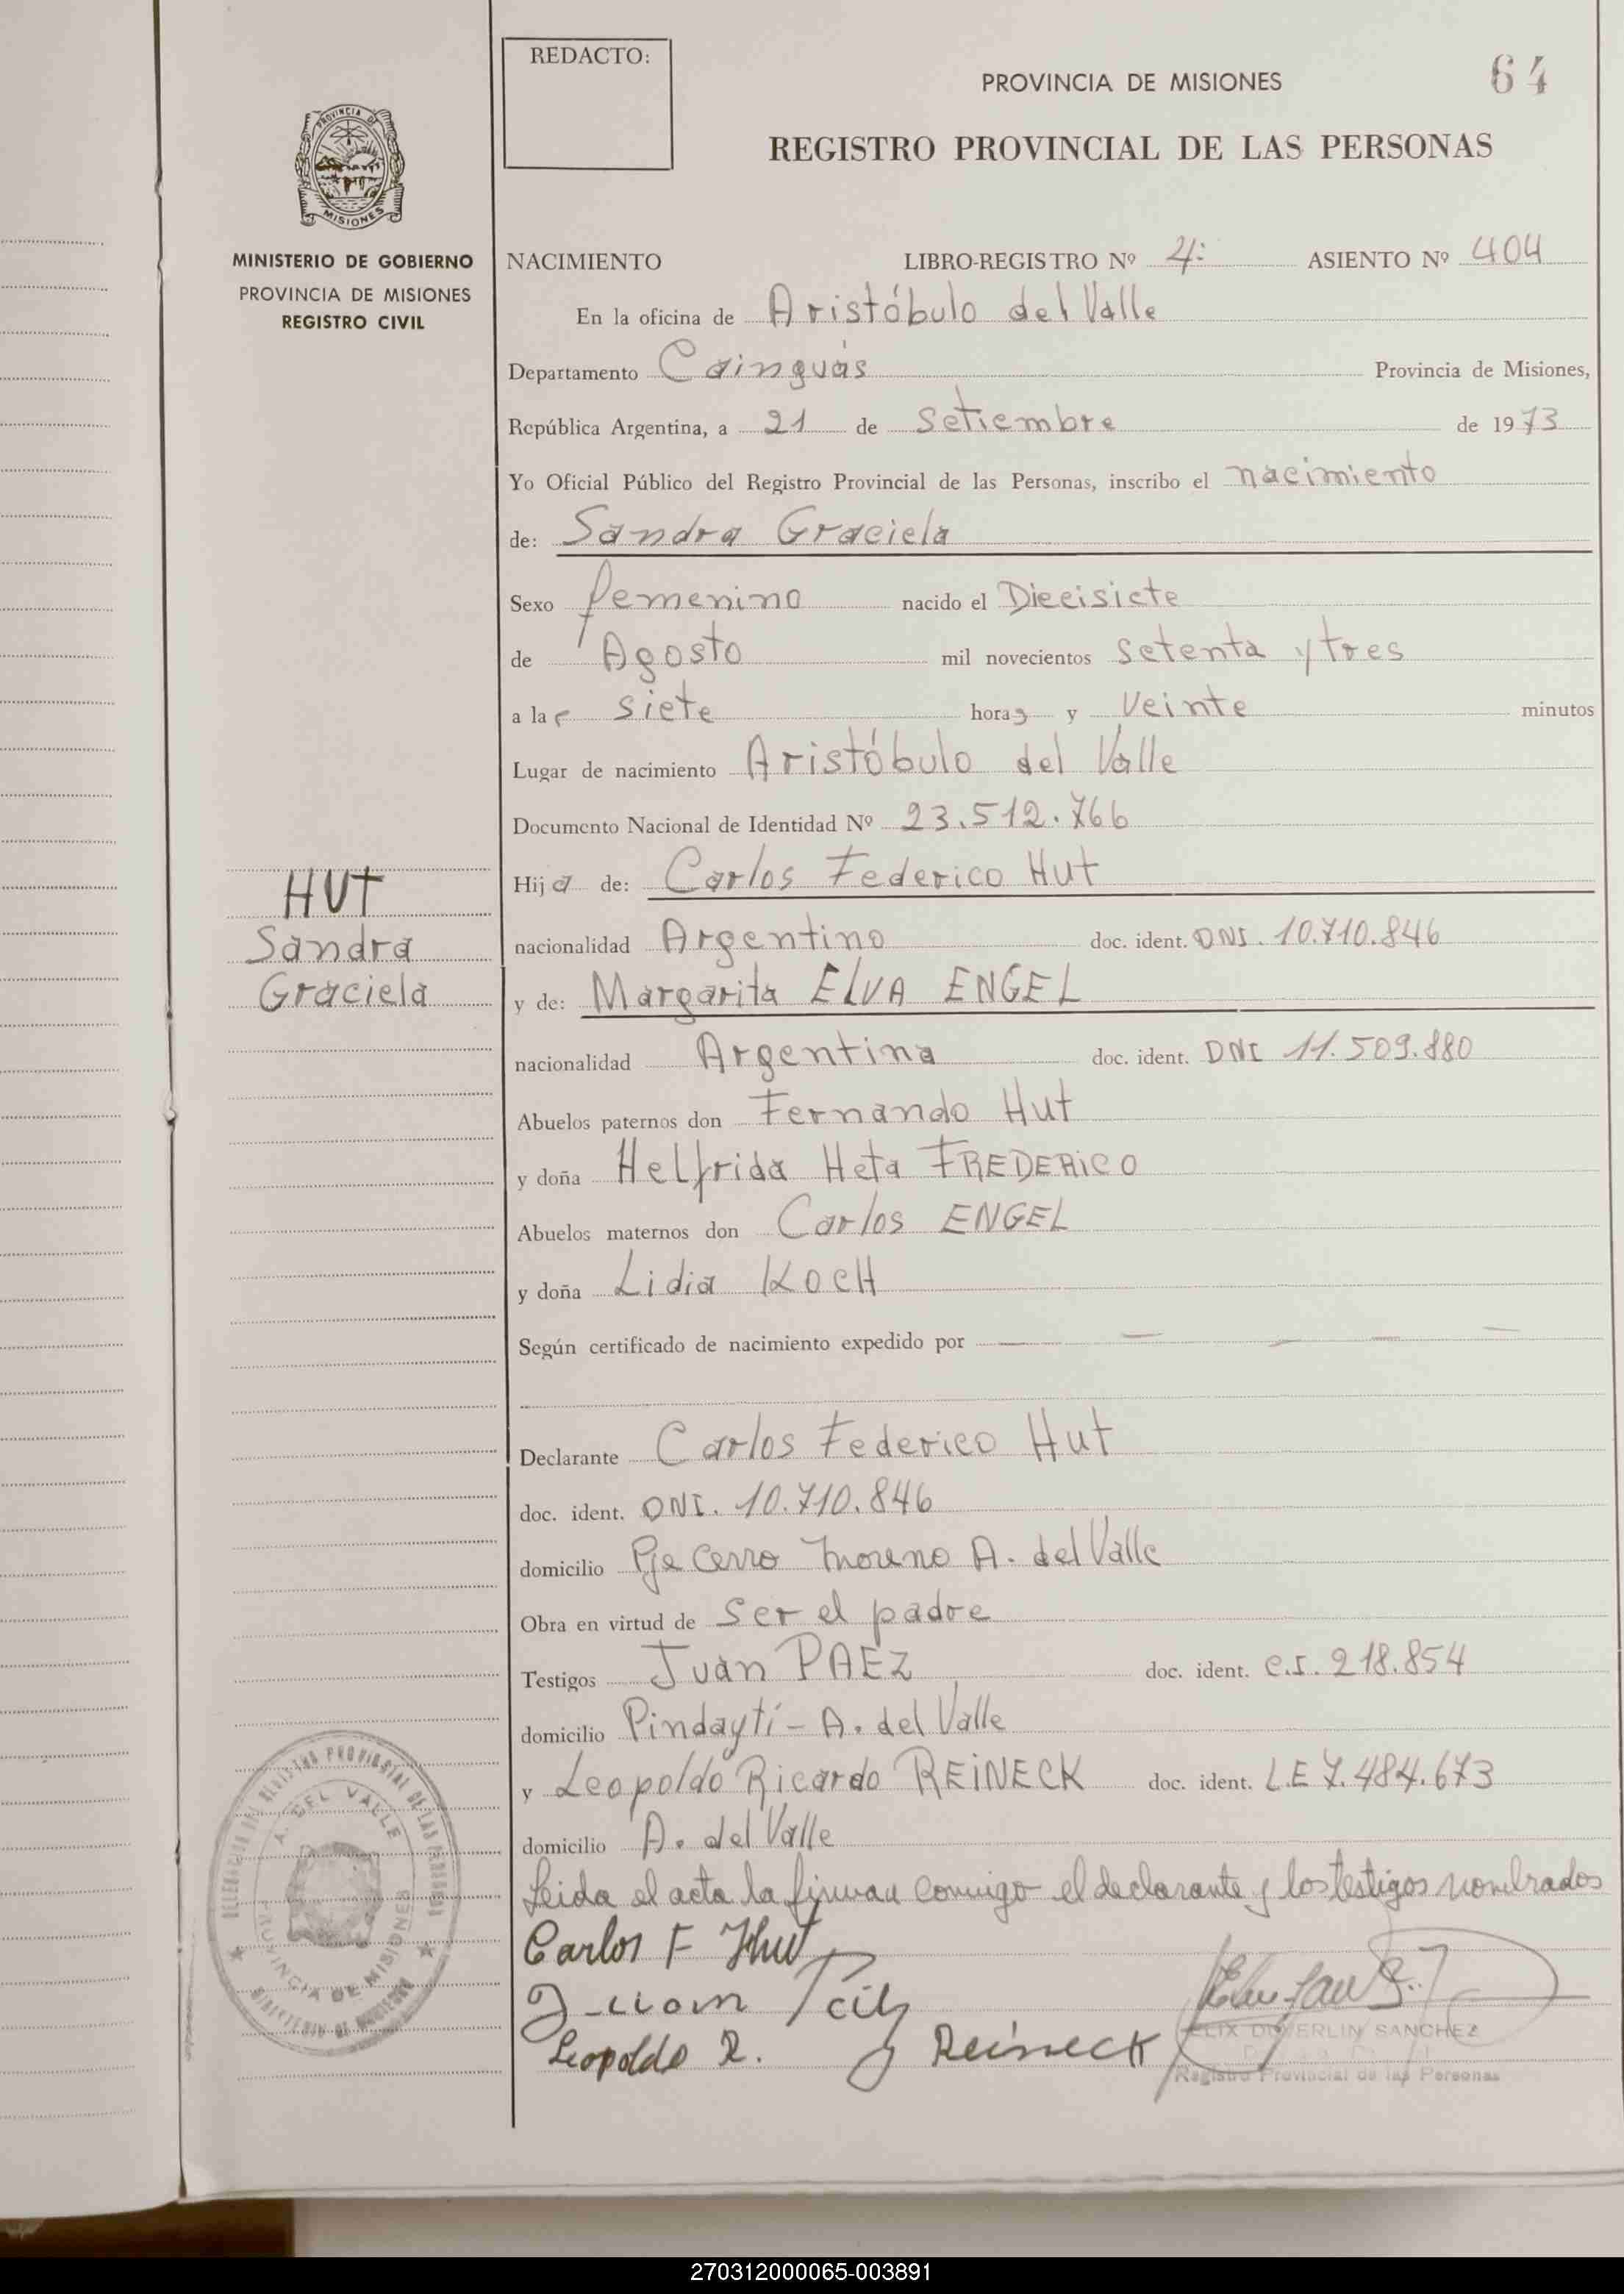 REDACTO:
PROVINCIA DE MISIONES
64
REGISTRO PROVINCIAL DE LAS PERSONAS
PROVINCIA DE
MISIONES
MINISTERIO DE GOBIERNO
PROVINCIA DE MISIONES
REGISTRO CIVIL
NACIMIENTO LIBRO-REGISTRO Nº 4: ASIENTO Nº 404
En la oficina de Aristóbulo del Valle
Departamento Cainguás Provincia de Misiones,
República Argentina, a 21 de Setiembre de 1973
Yo Oficial Público del Registro Provincial de las Personas, inscribo el nacimiento
de: Sandra Graciela
Sexo femenino nacido el Diecisiete
de Agosto mil novecientos setenta y tres
a las siete horas y veinte minutos
Lugar de nacimiento Aristóbulo del Valle
Documento Nacional de Identidad Nº 23.512.766
HUT
Sandra
Graciela
Hija de: Carlos Federico Hut
nacionalidad Argentino doc. ident. DNI. 10.710.846
y de: Margarita ELVA ENGEL
nacionalidad Argentina doc. ident. DNI 11.509.880
Abuelos paternos don Fernando Hut
y doña Helfrida Heta FREDERICO
Abuelos maternos don Carlos ENGEL
y doña Lidia KOCH
Según certificado de nacimiento expedido por — — — — —
Declarante Carlos Federico Hut
doc. ident. DNI. 10.710.846
domicilio Pje Cerro Moreno A. del Valle
Obra en virtud de ser el padre
Testigos Juan PAEZ doc. ident. C.I. 218.854
domicilio Pindaytí - A. del Valle
y Leopoldo Ricardo REINECK doc. ident. L.E 7.484.673
domicilio A. del Valle
Leida el acta la firman conmigo el declarante y los testigos nombrados
Carlos F Hut
Juan
Leopoldo R. Reineck
DELEGACION DEL REGISTRO PROVINCIAL DE LAS PERSONAS
A. DEL VALLE
PROVINCIA DE MISIONES
MINISTERIO DE GOBIERNO
SANCHEZ
Registro Provincial de las Personas
270312000065-003891